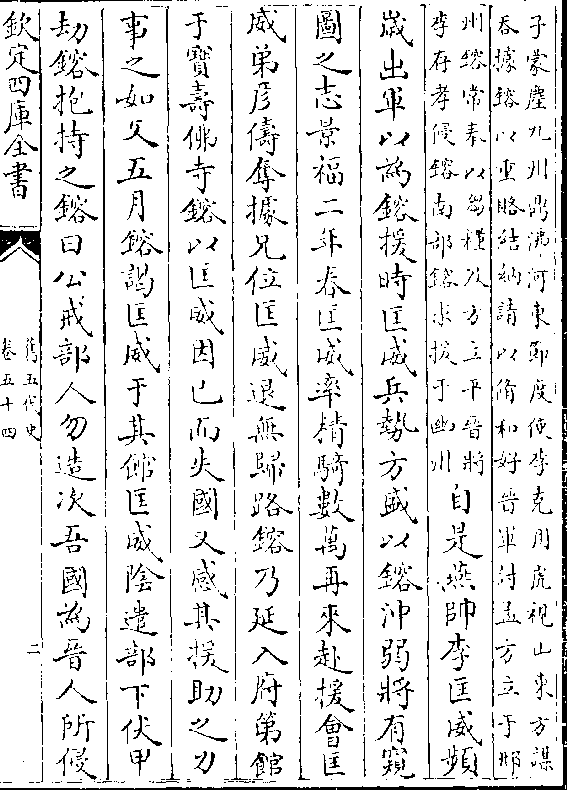 子蒙塵九州鼎沸河東節度使李克用虎視山東方謀
吞據鎔以重賂結納請以脩和好晉軍討孟方立于邢
州鎔常奉以芻糧及方立平晉將
李存孝侵鎔南部鎔求援于幽州
自是燕帥李匡威頻
歲出軍以為鎔援時匡威兵勢方盛以鎔沖弱將有窺
圖之志景福二年春匡威率精騎數萬再來赴援會匡
威弟彦儔奪據兄位匡威退無歸路鎔乃延入府第館
于寶壽佛寺鎔以匡威因已而失國又感其援助之力
事之如父五月鎔謁匡威于其館匡威陰遣部下伏甲
劫鎔抱持之鎔曰公戒部人勿造次吾國為晉人所侵
欽定四庫全書
舊五代史
卷五十四
二